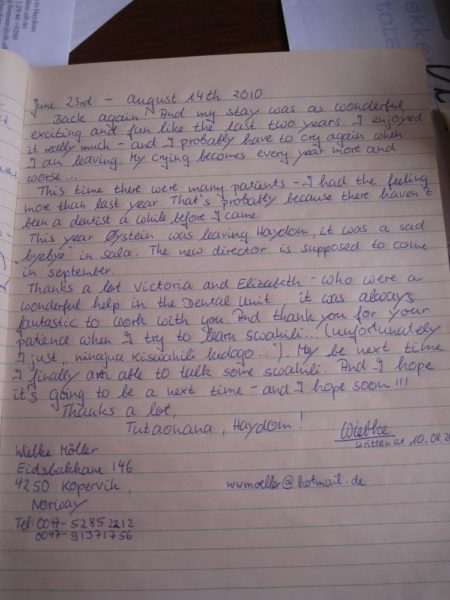 June 23rd - august 14th 2010
Back again. And my stay was as wonderful,
exciting and fun like the last two years. I enjoyed
it really much - and I probably have to cry again when
I am leaving. My crying becomes every year more and
worse...
This time there were many patients - I had the feeling
more than last year. That's probably because there haven't
been a dentist a while before I came.
This year Øystein was leaving Haydom, it was a sad
byebye in sala. The new director is supposed to come
in september.
Thanks a lot Victoria and Elizabeth - who were a
wonderful help in the Dental Unit, it was always
fantastic to work with you. And thank you for your
patience when I try to learn swahili... (unfortunately
I just „ ninajua kiswahili kidogo..."). May be next time
I finally am able to talk some swahili. And I hope
it's going to be a next time - and I hope soon !!!
Thanks a lot,
Tutaonana, Haydom!
Wiebke
written at 10.08.20
Wiebke Möller
Eidsbakkane 146
4250 Kopervik,
Norway
wwmoeller@hotmail.de
Tel: 0047- 52852212
0047- 91371756